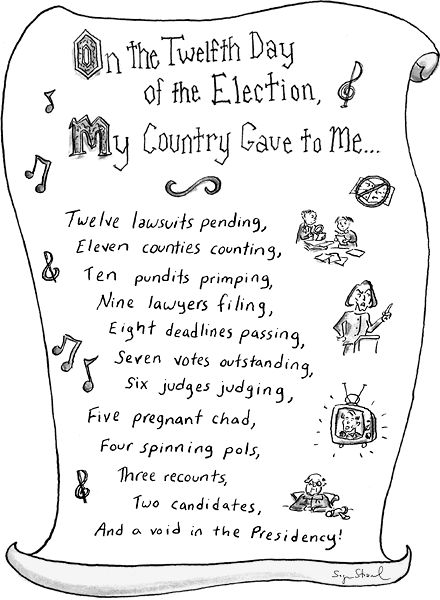 On the Twelfth Day
of the Election,
My Country Gave to Me...
Twelve lawsuits pending,
Eleven counties counting,
Ten pundits primping,
Nine lawyers filing,
Eight deadlines passing,
Seven votes outstanding,
Six judges judging,
Five pregnant chad,
Four spinning pols,
Three recounts,
Two candidates,
And a void in the Presidency!